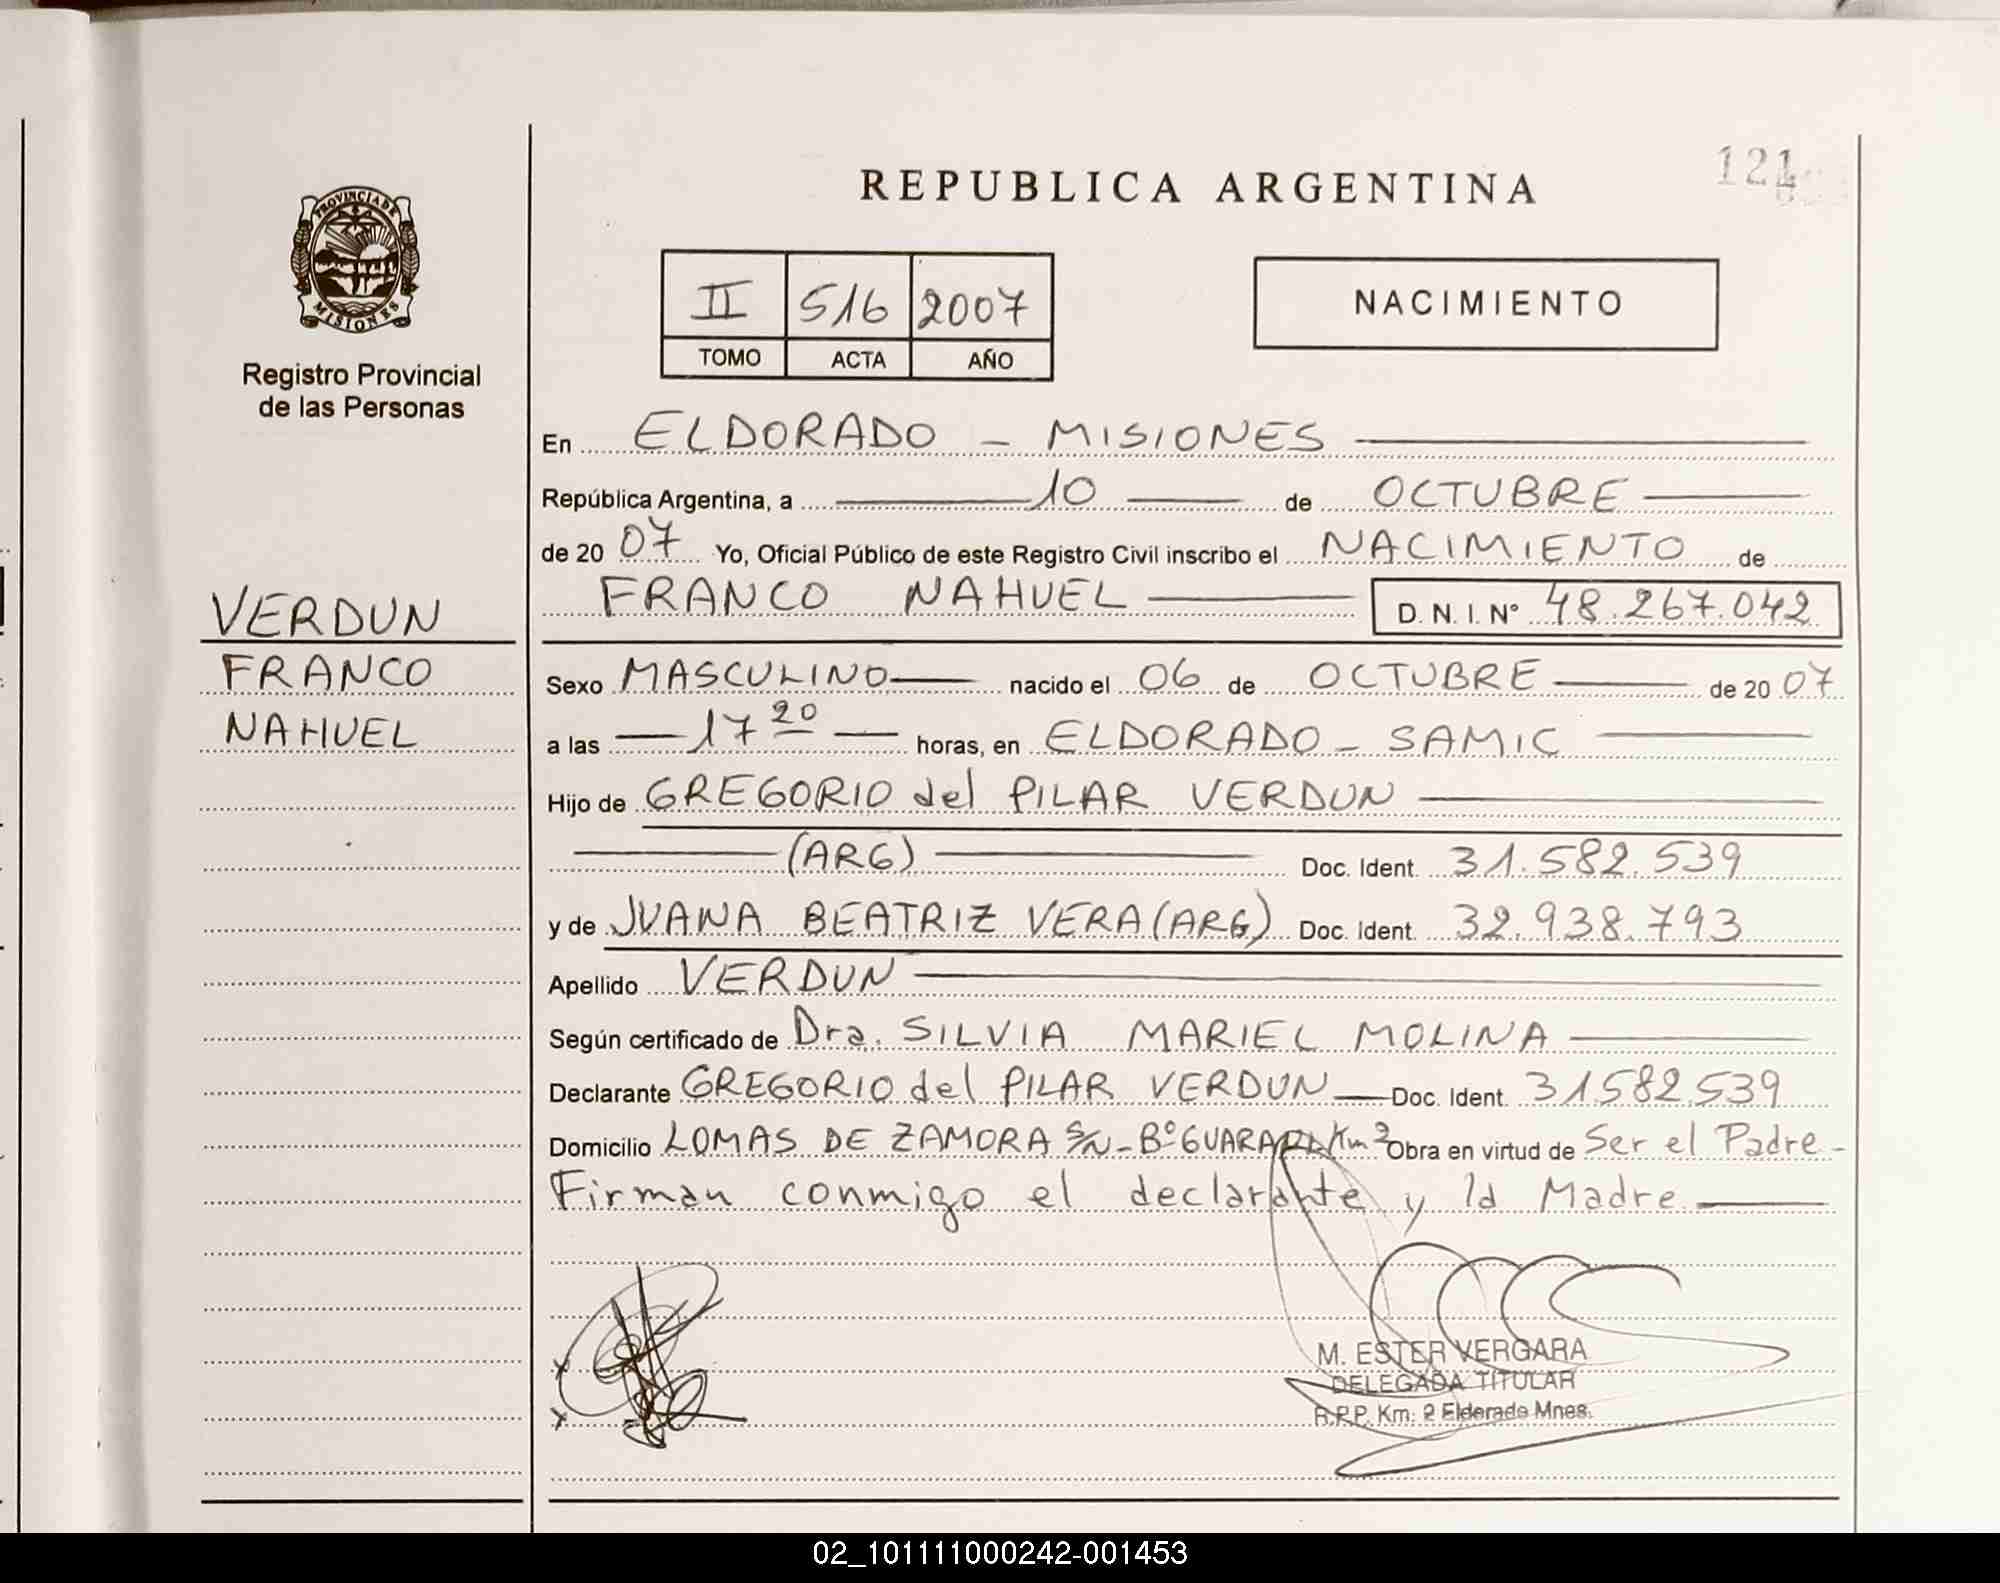 REPUBLICA ARGENTINA
121
PROVINCIA DE
MISIONES
Registro Provincial
de las Personas
II 516 2007
TOMO ACTA AÑO
NACIMIENTO
VERDUN
FRANCO
NAHUEL
En ELDORADO - MISIONES
República Argentina, a 10 de OCTUBRE
de 20 07 Yo, Oficial Público de este Registro Civil inscribo el NACIMIENTO de
FRANCO NAHUEL D. N. I. Nº 48.267.042
Sexo MASCULINO nacido el 06 de OCTUBRE de 20 07
a las 17 20 horas, en ELDORADO - SAMIC
Hijo de GREGORIO del PILAR VERDUN
(ARG) Doc. Ident. 31.582.539
y de JUANA BEATRIZ VERA (ARG) Doc. Ident. 32.938.793
Apellido VERDUN
Según certificado de Dra. SILVIA MARIEL MOLINA
Declarante GREGORIO del PILAR VERDUN Doc. Ident. 31.582.539
Domicilio LOMAS DE ZAMORA S/N - Bº Km Obra en virtud de Ser el Padre -
Firman conmigo el declarante y la Madre
M. ESTER VERGARA
DELEGADA TITULAR
R.P.P. Km. 2 Eldorado Mnes.
02_101111000242-001453